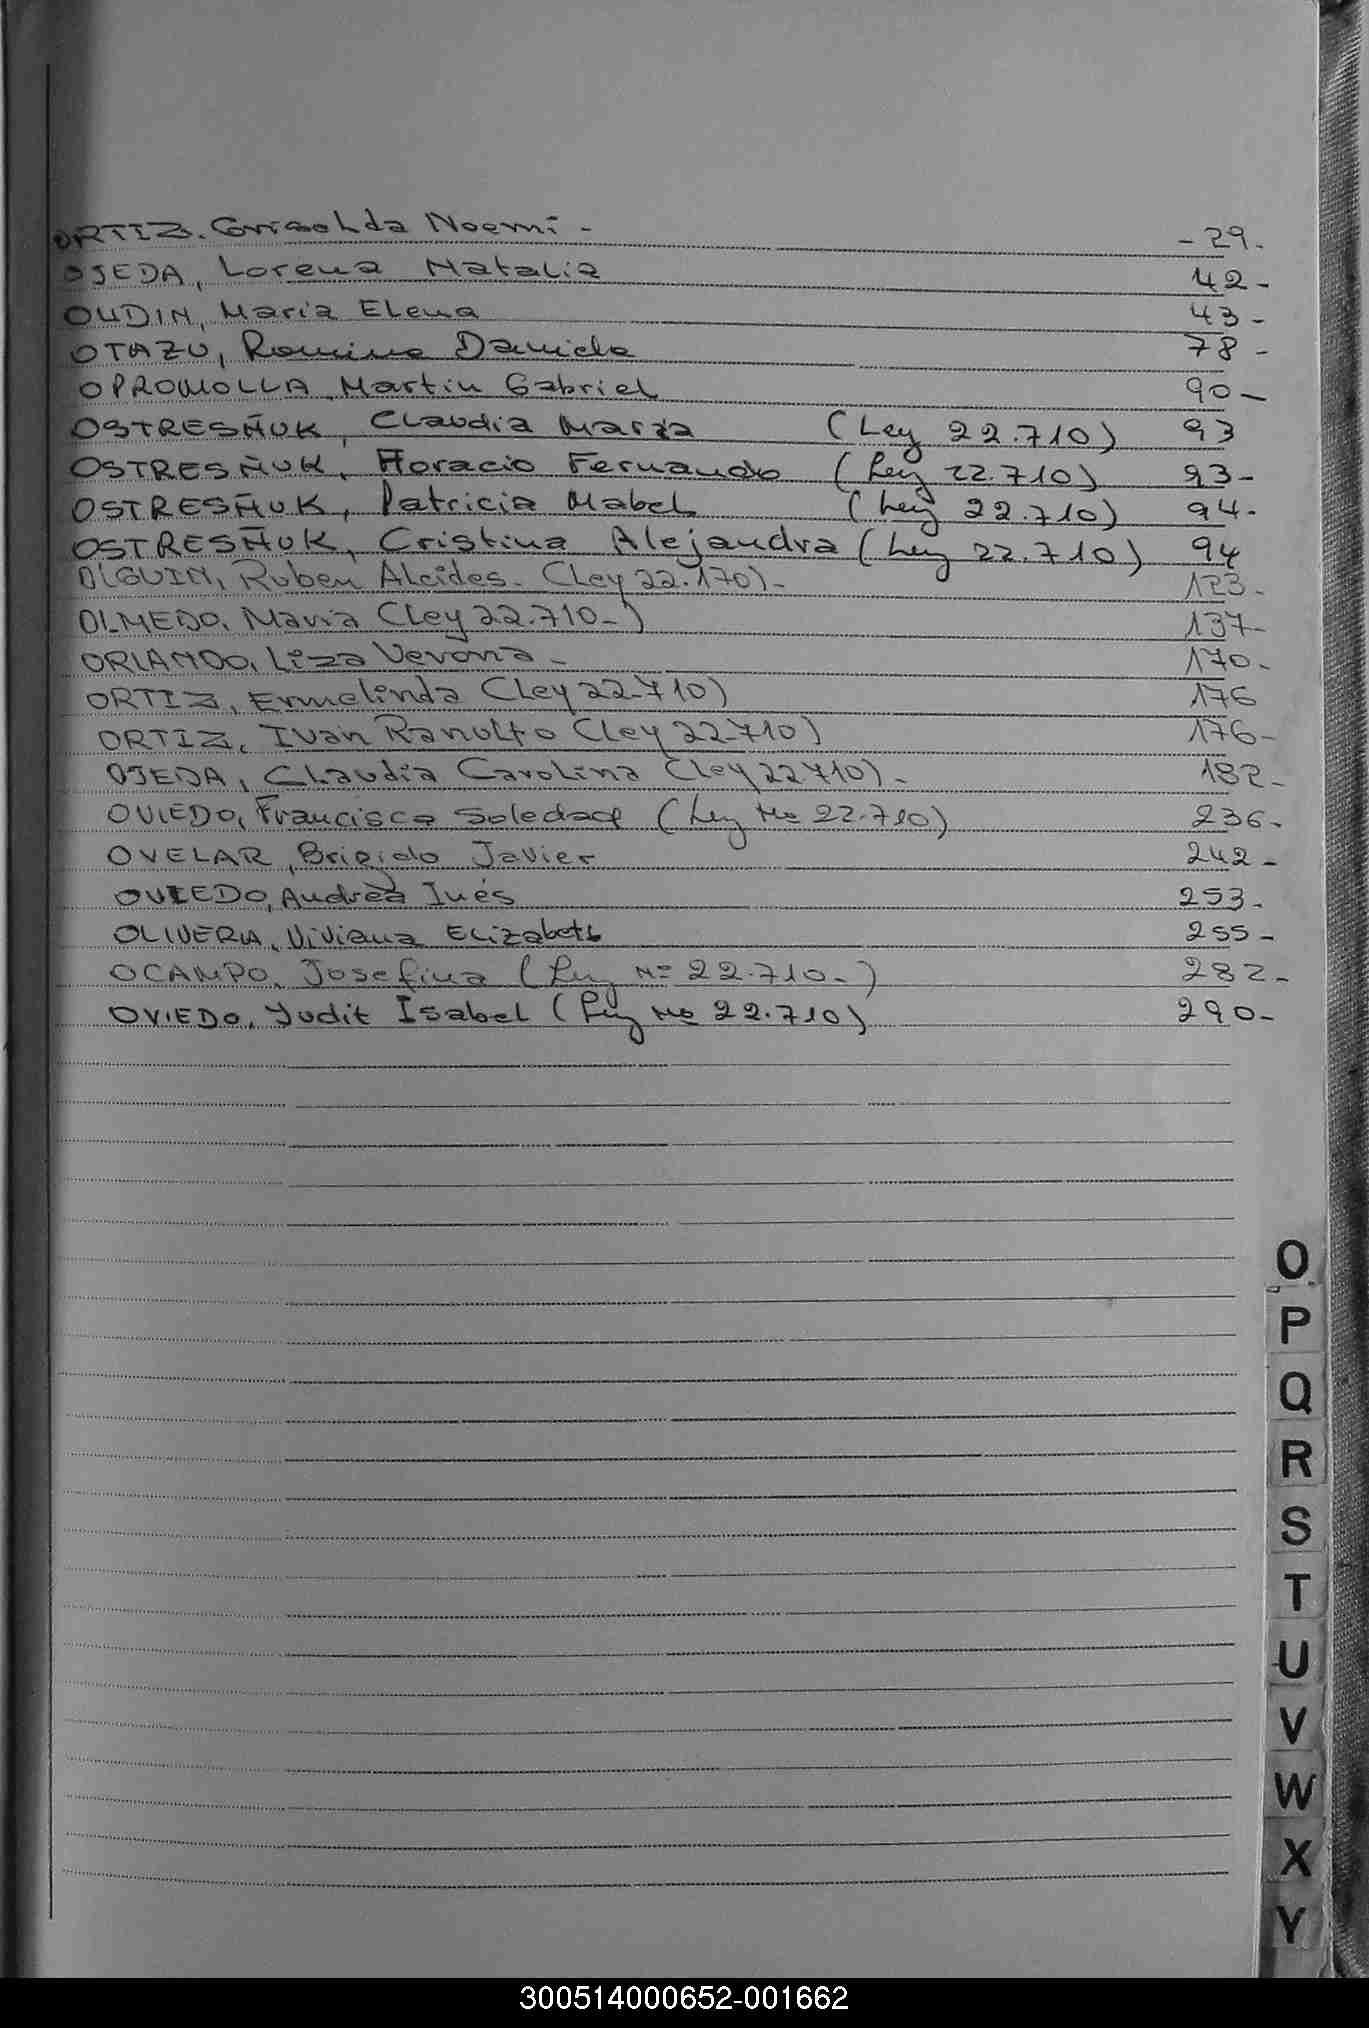 ORTIZ. Griselda Noemi - - 29 -
OJEDA, Lorena Natalia 42 -
OUDIN, Maria Elena 43 -
OTAZU, Romina Daniela 78 -
OPROMOLLA, Martin Gabriel 90 -
OSTRESÑUK, Claudia María (Ley 22.710) 93
OSTRESÑUK, Horacio Fernando (Ley 22.710) 93 -
OSTRESÑUK, Patricia Mabel (Ley 22.710) 94 -
OSTRESÑUK, Cristina Alejandra (Ley 22.710) 94
OLGUIN, Ruben Alcides. (Ley 22.170) - 123 -
OLMEDO, Maria (Ley 22.710 -) 137 -
ORLANDO, Liza Verona - 170 -
ORTIZ, Ermelinda (Ley 22.710) 176
ORTIZ, Ivan Ranulfo (Ley 22710) 176 -
OJEDA, Claudia Carolina (Ley 22710) - 182 -
OVIEDO, Francisca Soledad (Ley Nº 22.710) 236 -
OVELAR, Brigido Javier 242 -
OVIEDO, Andrea Inés 253 -
OLIVERIA, Viviana Elizabeth 255 -
OCAMPO, Josefina (Ley Nº 22.710 -) 282 -
OVIEDO, Yudit Isabel (Ley Nº 22.710) 290 -
O
P
Q
R
S
T
U
V
W
X
Y
300514000652-001662